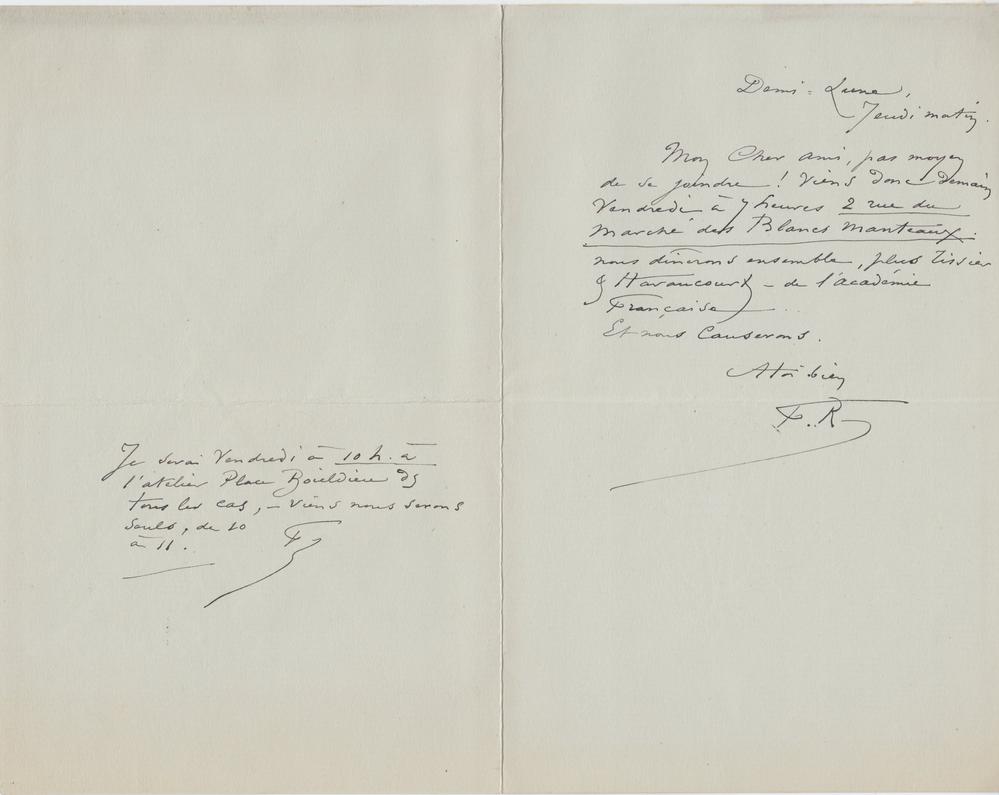 Demi-Lune,
Jeudi matin.
Mon Cher ami, pas moyen
de se joindre ! Viens donc demain
Vendredi à 7 heures 2 rue du
marché des Blancs Manteaux.
nous dînerons ensemble, plus Tissier
& Haraucourt – de l'académie
Française) ...
Et nous Causerons.
A toi bien
F. R
Je serai Vendredi à 10 h. à
l'atelier Place Boieldieu ds
tous les cas, – viens nous serons
seuls, de 10
à 11.
F